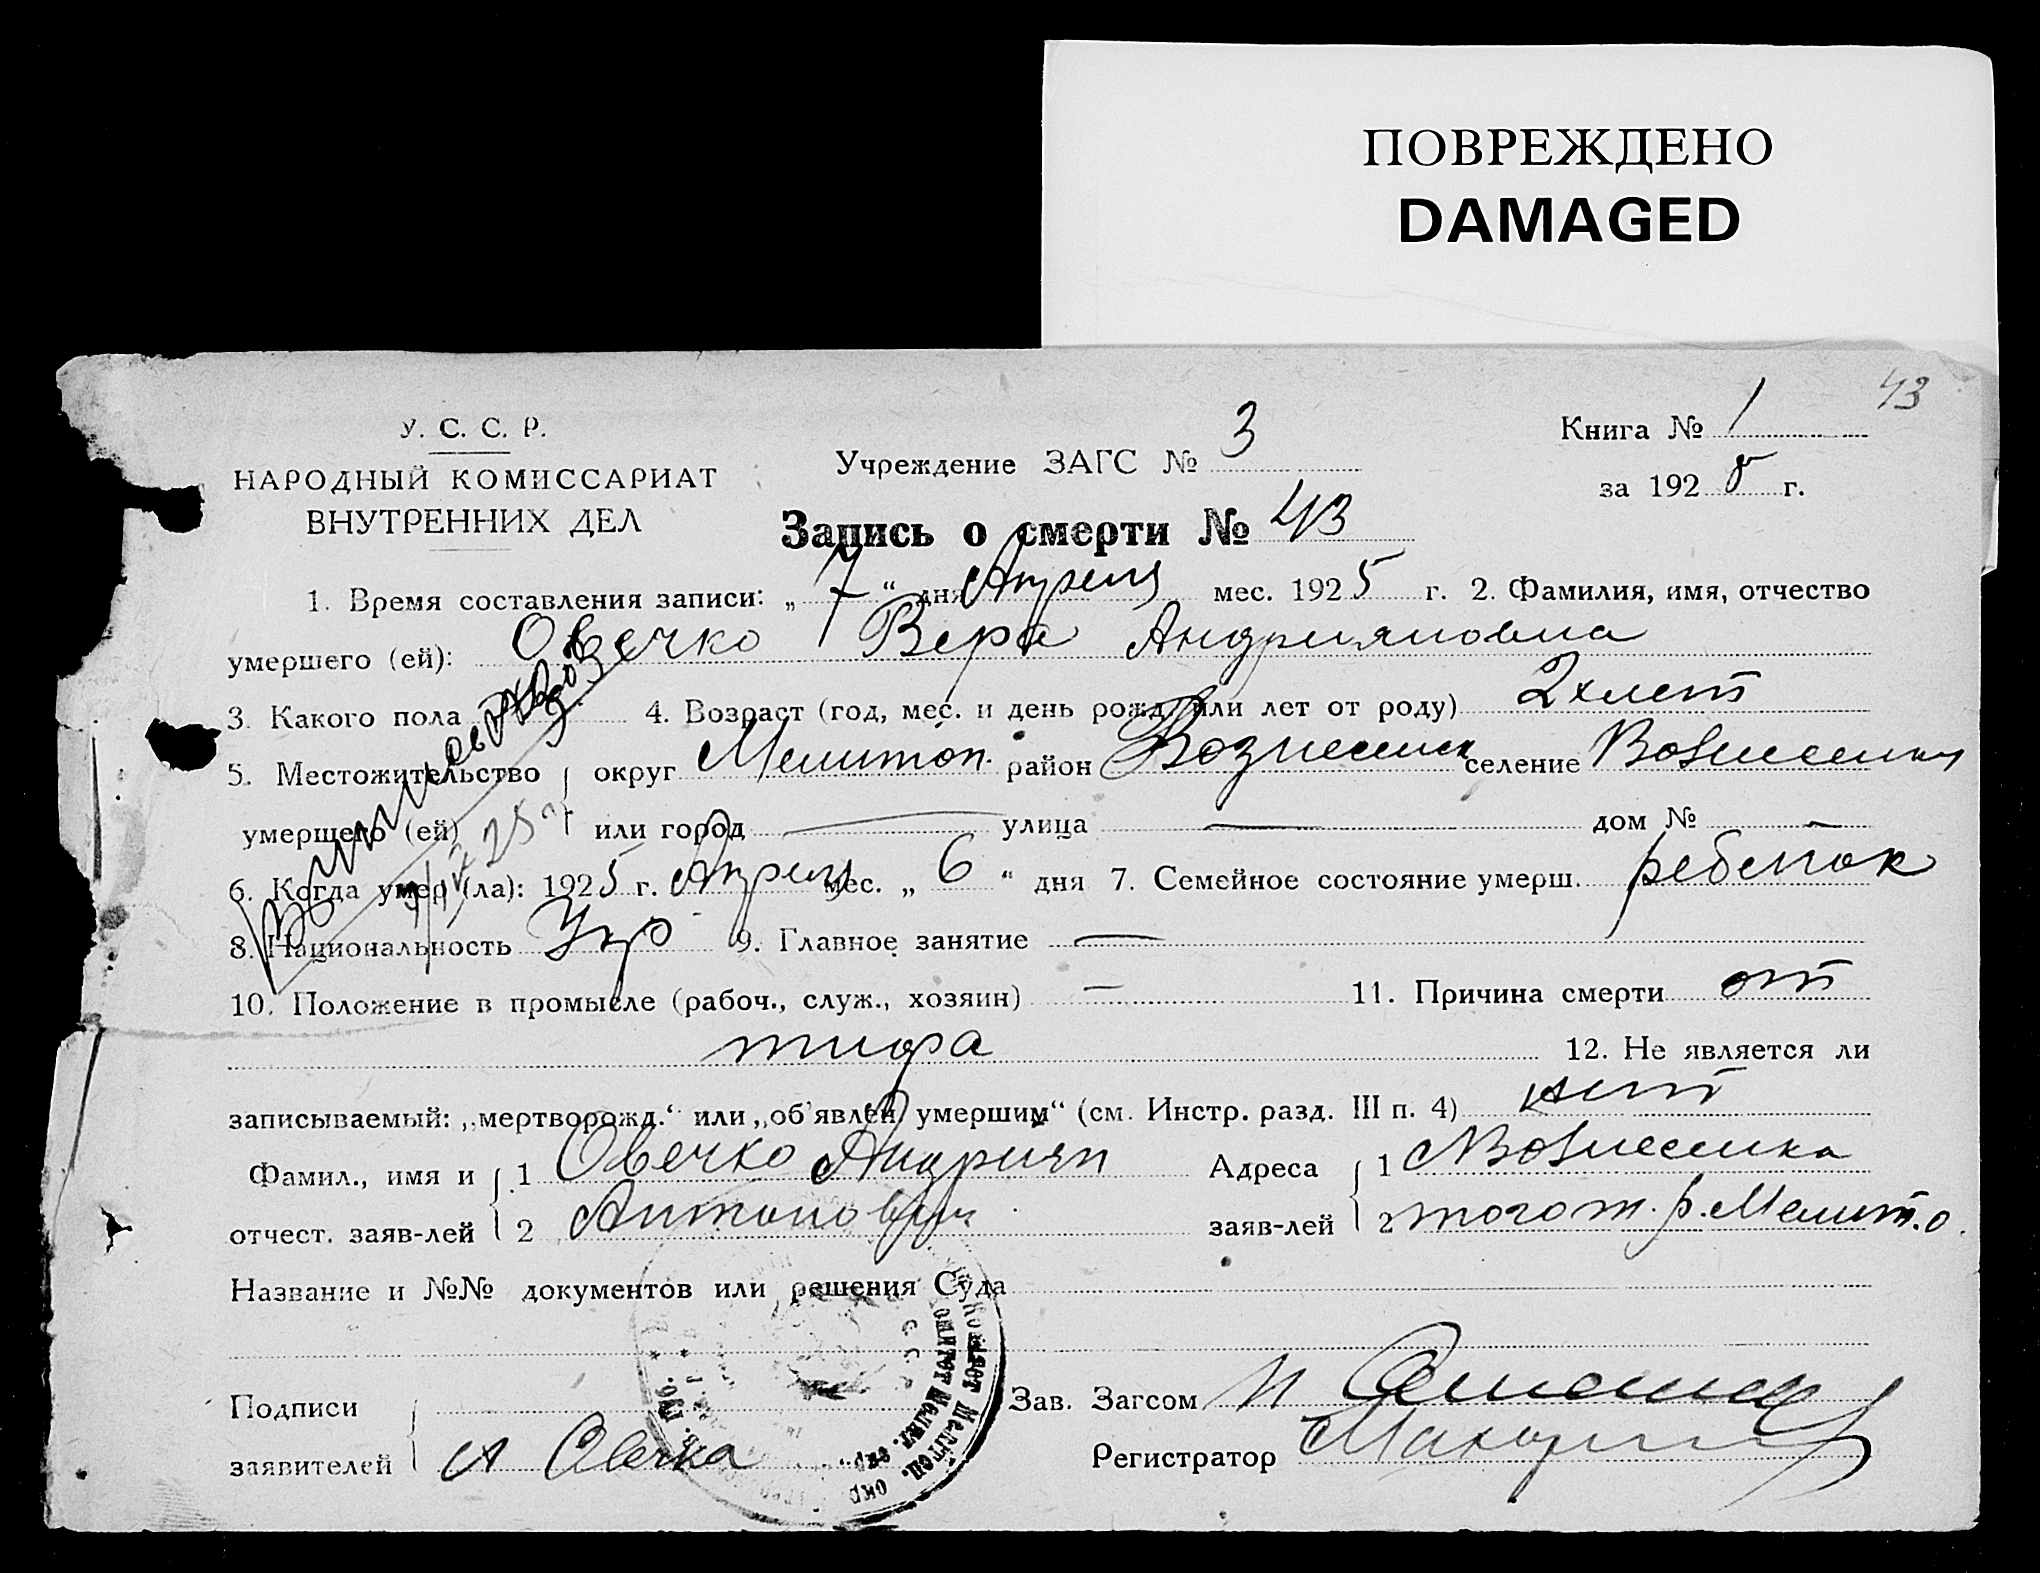 ПОВРЕЖДЕНО
DAMAGED
43
У. С. С. Р.
НАРОДНЫЙ КОМИССАРИАТ
ВНУТРЕННИХ ДЕЛ
Учреждение ЗАГС № 3
Книга № 1
за 1925 г.
Запись о смерти № 43
1. Время составления записи: „ 7 “ дня Апреля мес. 1925 г. 2. Фамилия, имя, отчество
умершего (ей): Овечко Вера Андрияновна
3. Какого пола 4. Возраст (год, мес. и день рожд. или лет от роду) 2х лет
5. Местожительство округ Мелитоп. район Вознесенск селение Вознесенка
умершего (ей) или город — улица — дом № —
6. Когда умер (ла): 1925 г. Апреля мес. „ 6 “ дня 7. Семейное состояние умерш. ребенок
8. Национальность Укр 9. Главное занятие —
10. Положение в промысле (рабоч., служ., хозяин) — 11. Причина смерти от
тифа 12. Не является ли
записываемый: „мертворожд.“ или „об'явлен умершим“ (см. Инстр. разд. III п. 4) нет
Фамил., имя и 1 Овечко Андриян Адреса 1 Вознесенка
отчест. заяв-лей 2 Антонович заяв-лей 2 того ж. р. Мелит. о.
Название и №№ документов или решения Суда
Подписи
Зав. Загсом
заявителей А Овечка
Регистратор